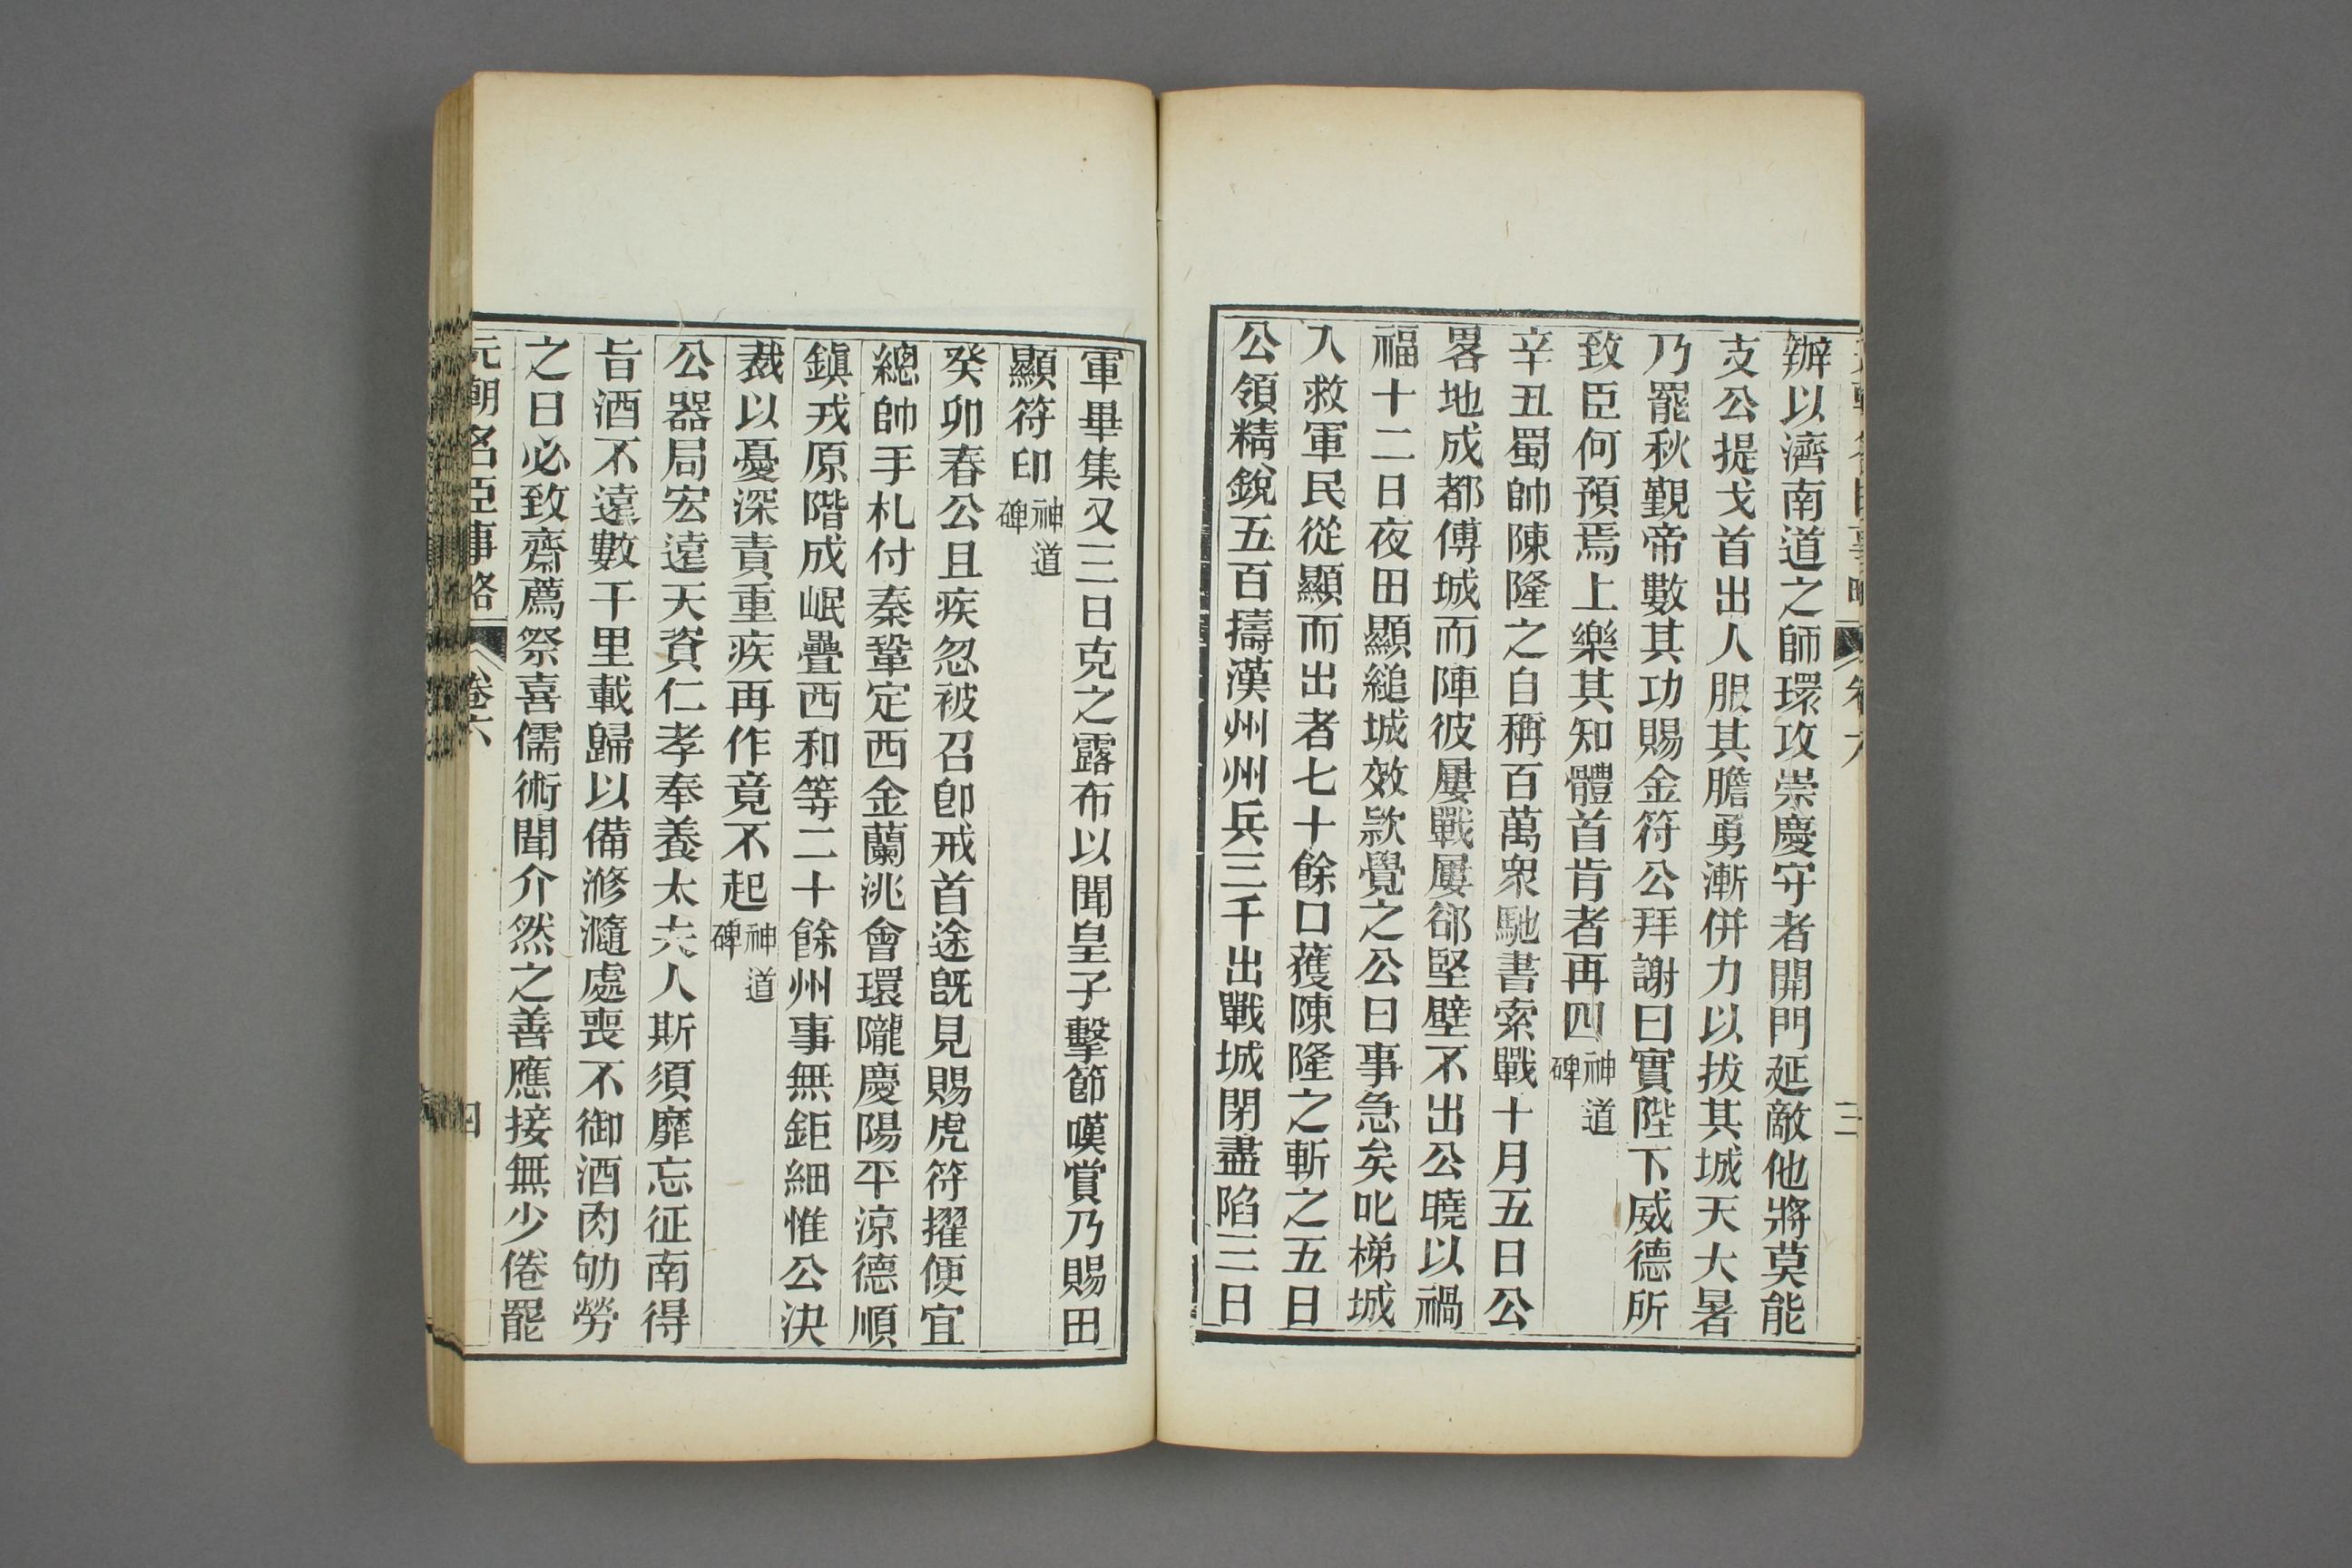 辦以濟南道之師環攻崇慶守者開門延敵他將莫能
支公提戈首出人服其膽勇漸併力以拔其城天大暑
乃罷秋覲帝數其功賜金符公拜謝曰實陛下威德所
致臣何預焉上樂其知體首肯者再四神道碑
辛丑蜀帥陳隆之自稱百萬衆馳書索戰十月五日公
畧地成都傅城而陣彼屢戰屢卻堅壁不出公曉以禍
福十二日夜田顯縋城效款覺之公曰事急矣叱梯城
入救軍民從顯而出者七十餘口獲陳隆之斬之五日
公領精銳五百擣漢州州兵三千出戰城閉盡陷三日
軍畢集又三日克之露布以聞皇子擊節嘆賞乃賜田
顯符印神道碑
癸卯春公且疾忽被召卽戒首途旣見賜虎符擢便宜
總帥手札付秦鞏定西金蘭洮會環隴慶陽平涼德順
鎭戎原階成岷疊西和等二十餘州事無鉅細惟公決
裁以憂深責重疾再作竟不起神道碑
公器局宏遠天資仁孝奉養太夫人斯須靡忘征南得
旨酒不遠數千里載歸以備滫瀡處喪不御酒肉劬勞
之日必致齋薦祭喜儒術聞介然之善應接無少倦罷
元朝名臣事略 卷六 四